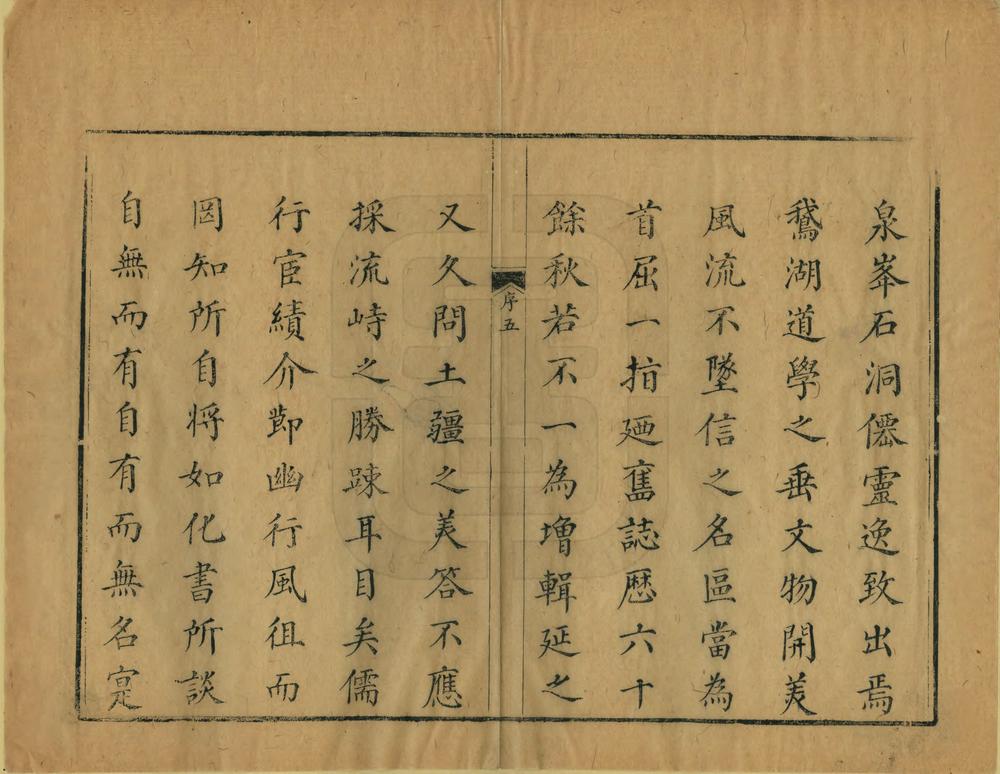 泉峯石洞僊靈逸致出焉
鵞湖道學之垂文物開美
風流不墜信之名區當為
首屈一指廼舊誌歷六十
餘秋若不一為增輯延之
序五
又久問土疆之美答不應
採流峙之勝踈耳目矣儒
行宦績介節幽行風徂而
罔知所自將如化書所談
自無而有自有而無名寔